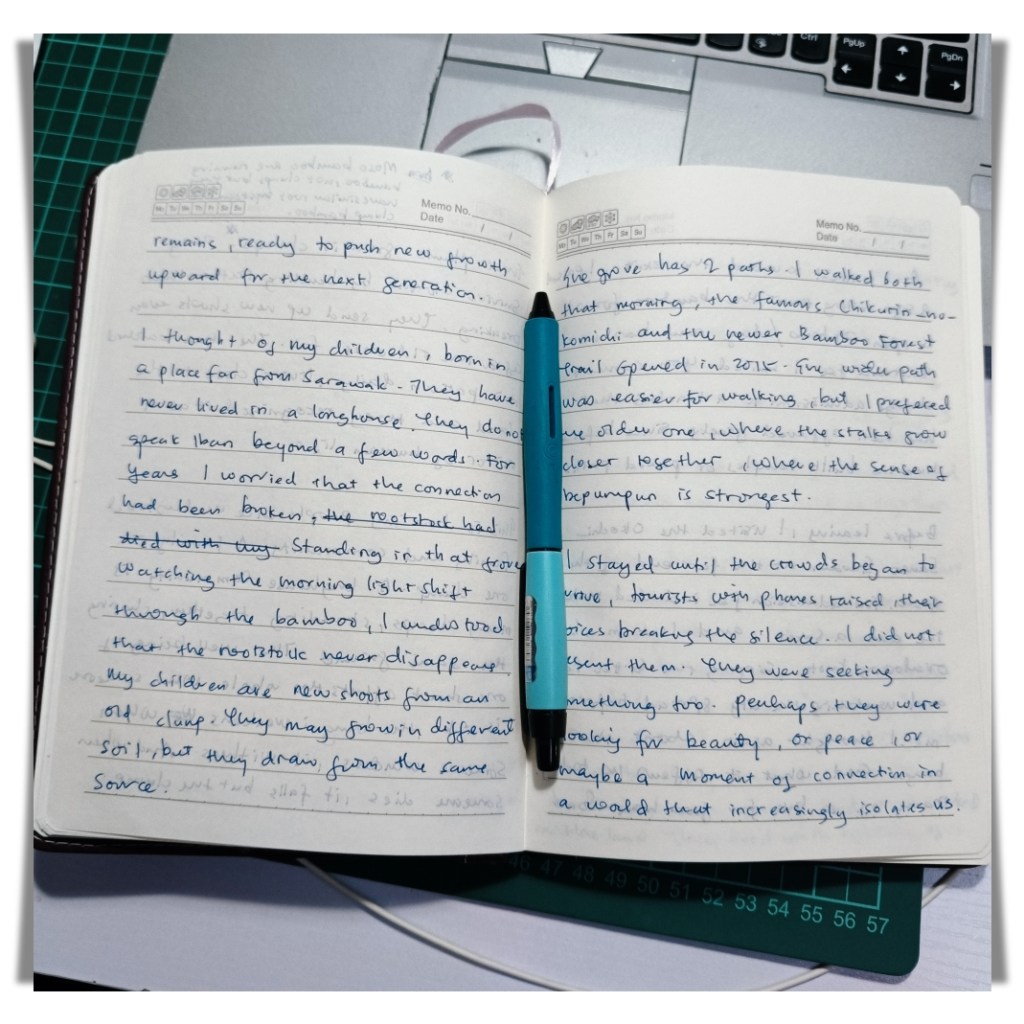 Ctrl
PgUp
PgDn
Memo No.
Date / /
Mo Tu We Th Fr Sa Su
remains, ready to push new growth
upward for the next generation.
I thought of my children, born in
a place far from Sarawak. They have
never lived in a longhouse. They do not
speak Iban beyond a few words. For
years I worried that the connection
had been broken, the rootstock had
died with my Standing in that grove
watching the morning light shift
through the bamboo, I understood
that the rootstock never disappears.
My children are new shoots from an
old clump. They may grow in different
soil, but they draw from the same
source.
Memo No.
Date / /
Mo Tu We Th Fr Sa Su
The grove has 2 paths. I walked both
that morning, the famous Chikurin-no-
komichi and the newer Bamboo Forest
Trail opened in 2015. The wider path
was easier for walking, but I prefered
the older one, where the stalks grow
closer together, where the sense of
bepumpun is strongest.
I stayed until the crowds began to
rrive, tourists with phones raised, their
oices breaking the silence. I did not
esent them. They were seeking
mething too. Perhaps they were
looking for beauty, or peace, or
maybe a moment of connection in
a world that increasingly isolates us.
46 47 48 49 50 51 52 53 54 55 56 57